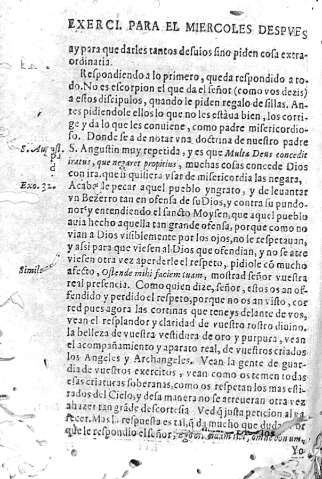 EXERCI. PARA EL MIERCOLES DESPVES
ay para que darles tantos desuios sino piden cosa extra-
ordinaria.
Respondiendo à lo primero, queda respondido a to-
do. No es escorpion el que da el señor (como vos dezis)
a estos discipulos, quando le piden regalo de sillas. An-
tes pidiendole ellos lo que no les estàua bien, los corri-
ge y da lo que les conuiene, como padre misericordio-
so. Donde se a de notar vna doctrina de nuestro padre
S. Augustin muy repetida, y es que Multa Deus concedit
iratus, que negaret propitius, muchas cosas concede Dios
con ira, que si quisiera vsar de misericordia las negara,
Exo. 32.
Acaba de pecar aquel pueblo yngrato, y de leuantar
vn Bezerro tan en ofensa de su Dios, y contra su pundo-
nor y entendiendo el sancto Moysen, que aquel pueblo
auia hecho aquella tan grande ofensa, porque como no
vian a Dios visiblemente por los ojos, no le respetauan,
y assi para que viesen al Dios que ofendian, y no se atre
viesen otra vez a perderle el respeto, pidiole cō mucho
Simile
afecto, Ostende mihi faciem tuam, mostrad señor vuestra
real presencia. Como quien dize, señor, estos os an of-
fendido y perdido el respeto, porque no os an visto, cor
red pues agora las cortinas que teneys delante de vos,
vean el resplandor y claridad de vuestro rostro diuino,
la belleza de vuestra vestidura de oro y purpura, vean
el acompañamiento y aparato real, de vuestros criados
los Angeles y Archangeles. Vean la gente de guar-
dia de vuestros exercitos, vean como os temen todas
esas criaturas soberanas, como os respetan los mas esti-
rados del Cielo, y desa manera no se atreueran otra vez
a hazer tan grãde descortesia. Ved q̃ justa peticion al pa
recer. Mas la respuesta es tal, q̃ da mucho que dudar, por
que le respondio el señor,
Yo